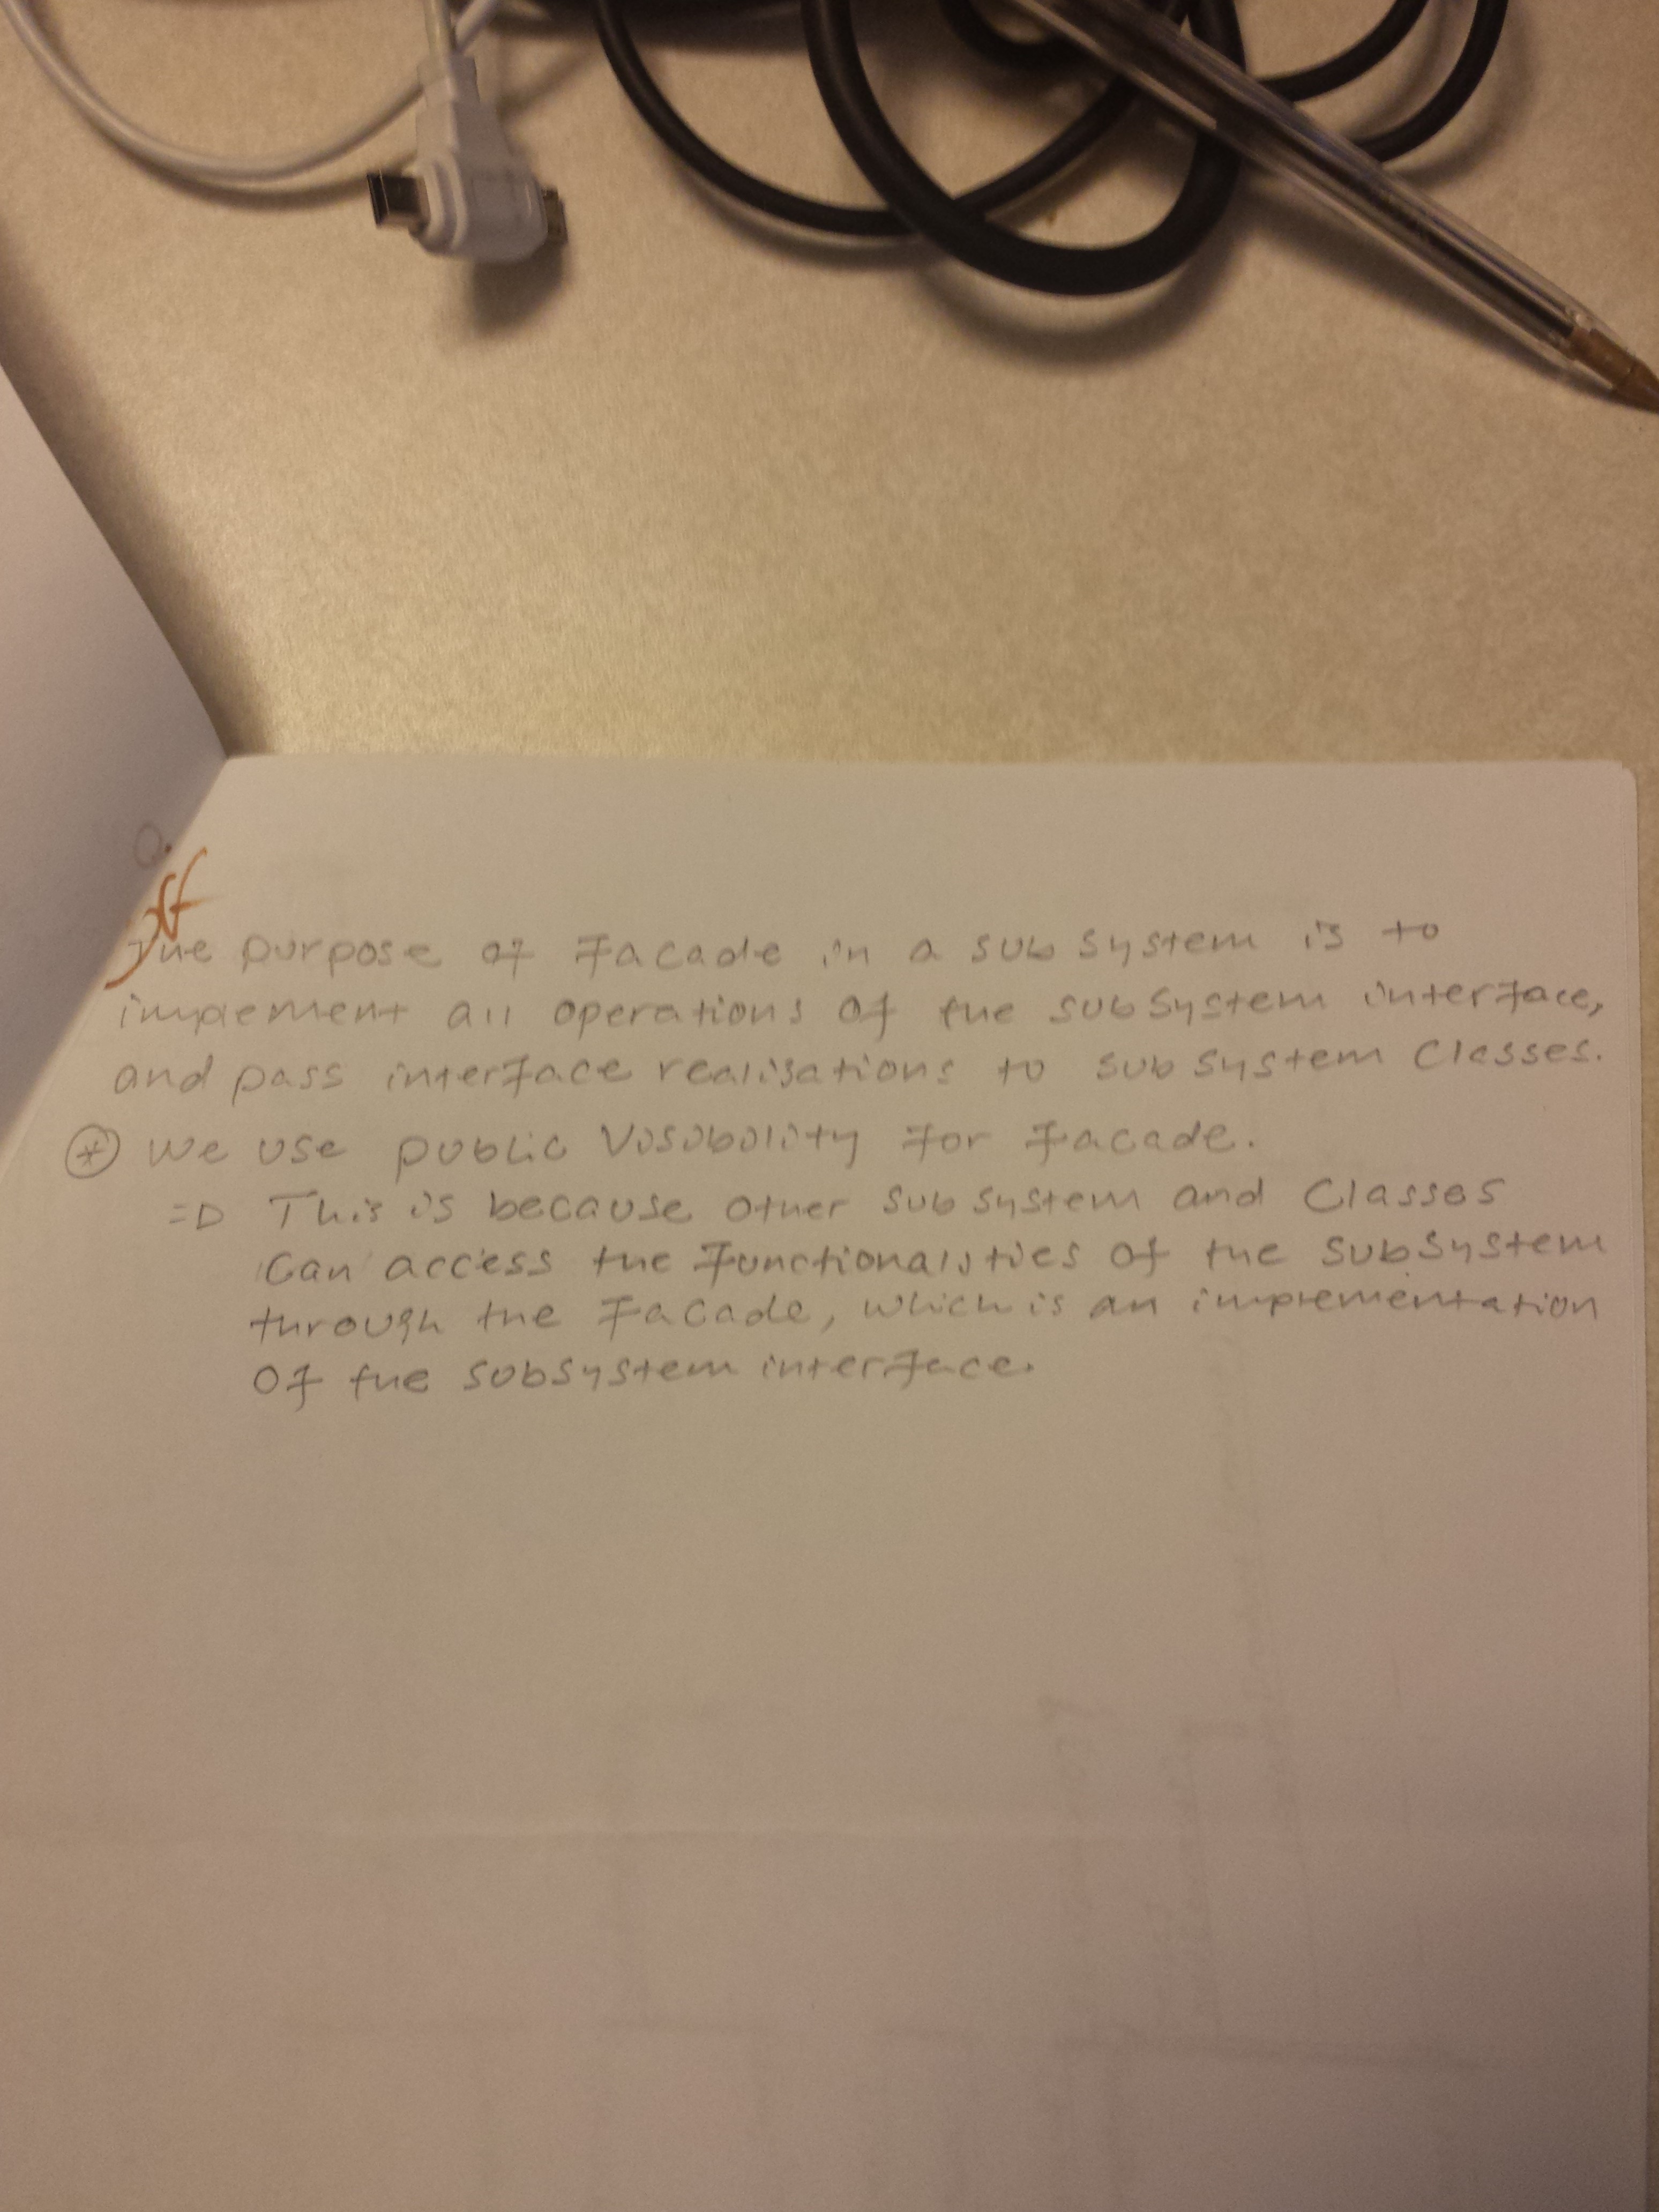 The purpose of Facade in a subsystem is to
implement all operations of the subsystem interface,
and pass interface realisations to subsystem classes.
* We use public Visibility for Facade.
=D This is because other subsystem and Classes
Can access the Functionalities of the subsystem
through the Facade, which is an implementation
Of the subsystem interface.